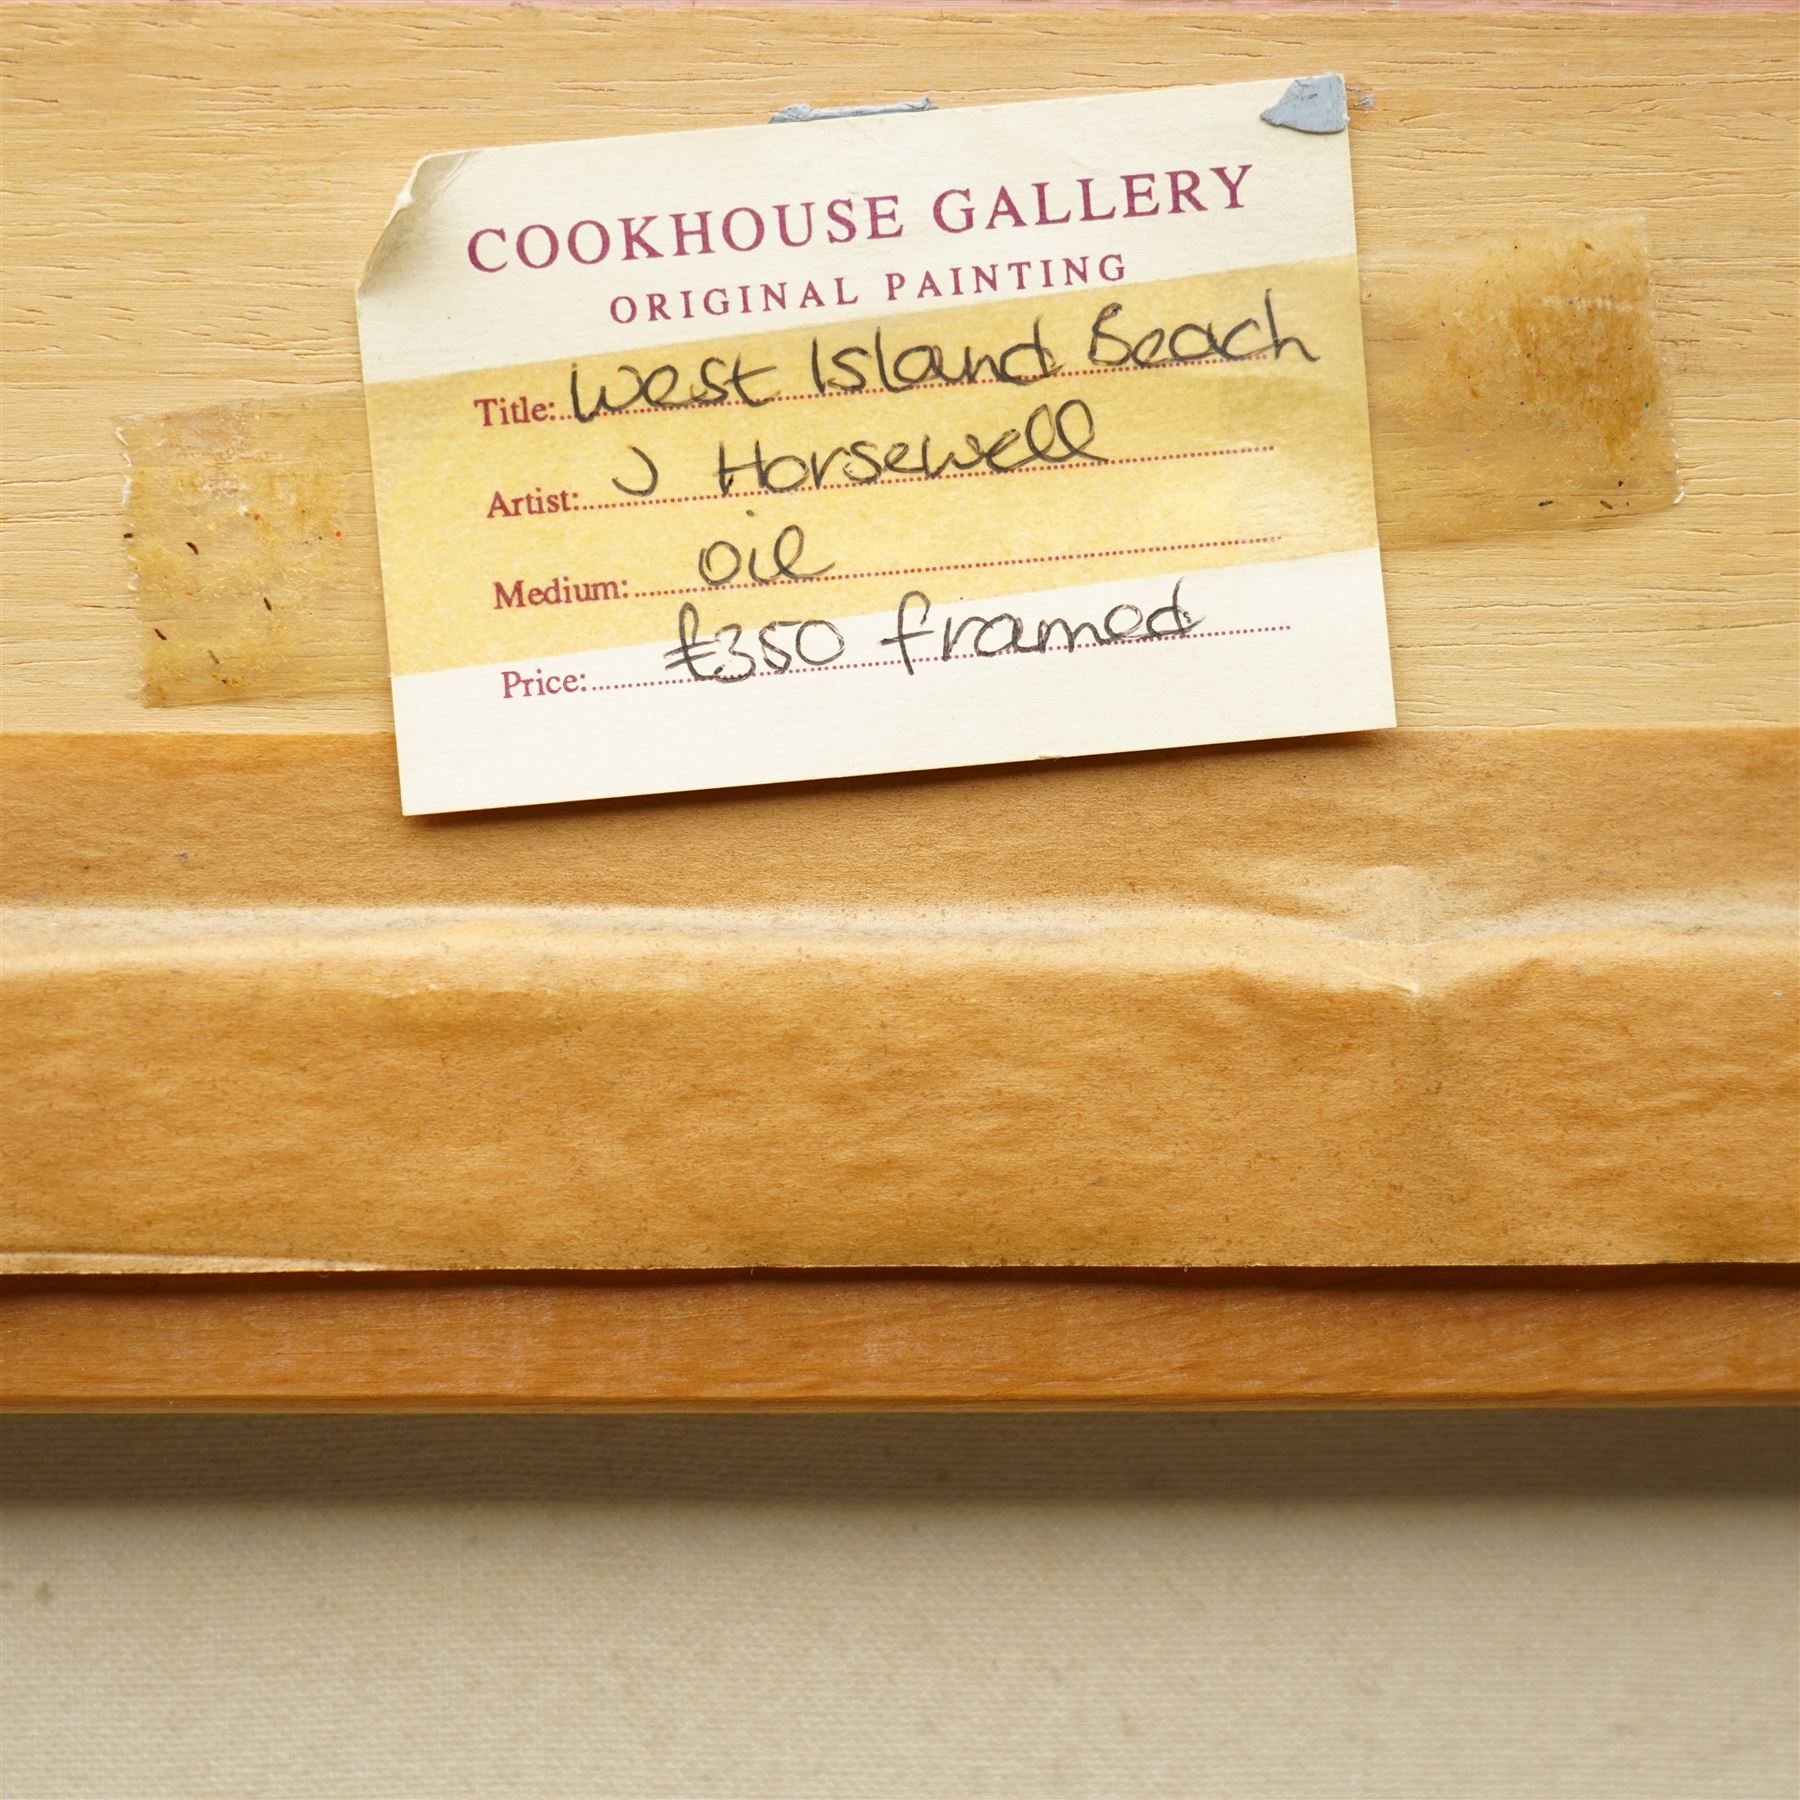 COOKHOUSE GALLERY
ORIGINAL PAINTING
Title: West Island Beach
Artist: J Horsewell
Medium: oil
Price: £350 framed